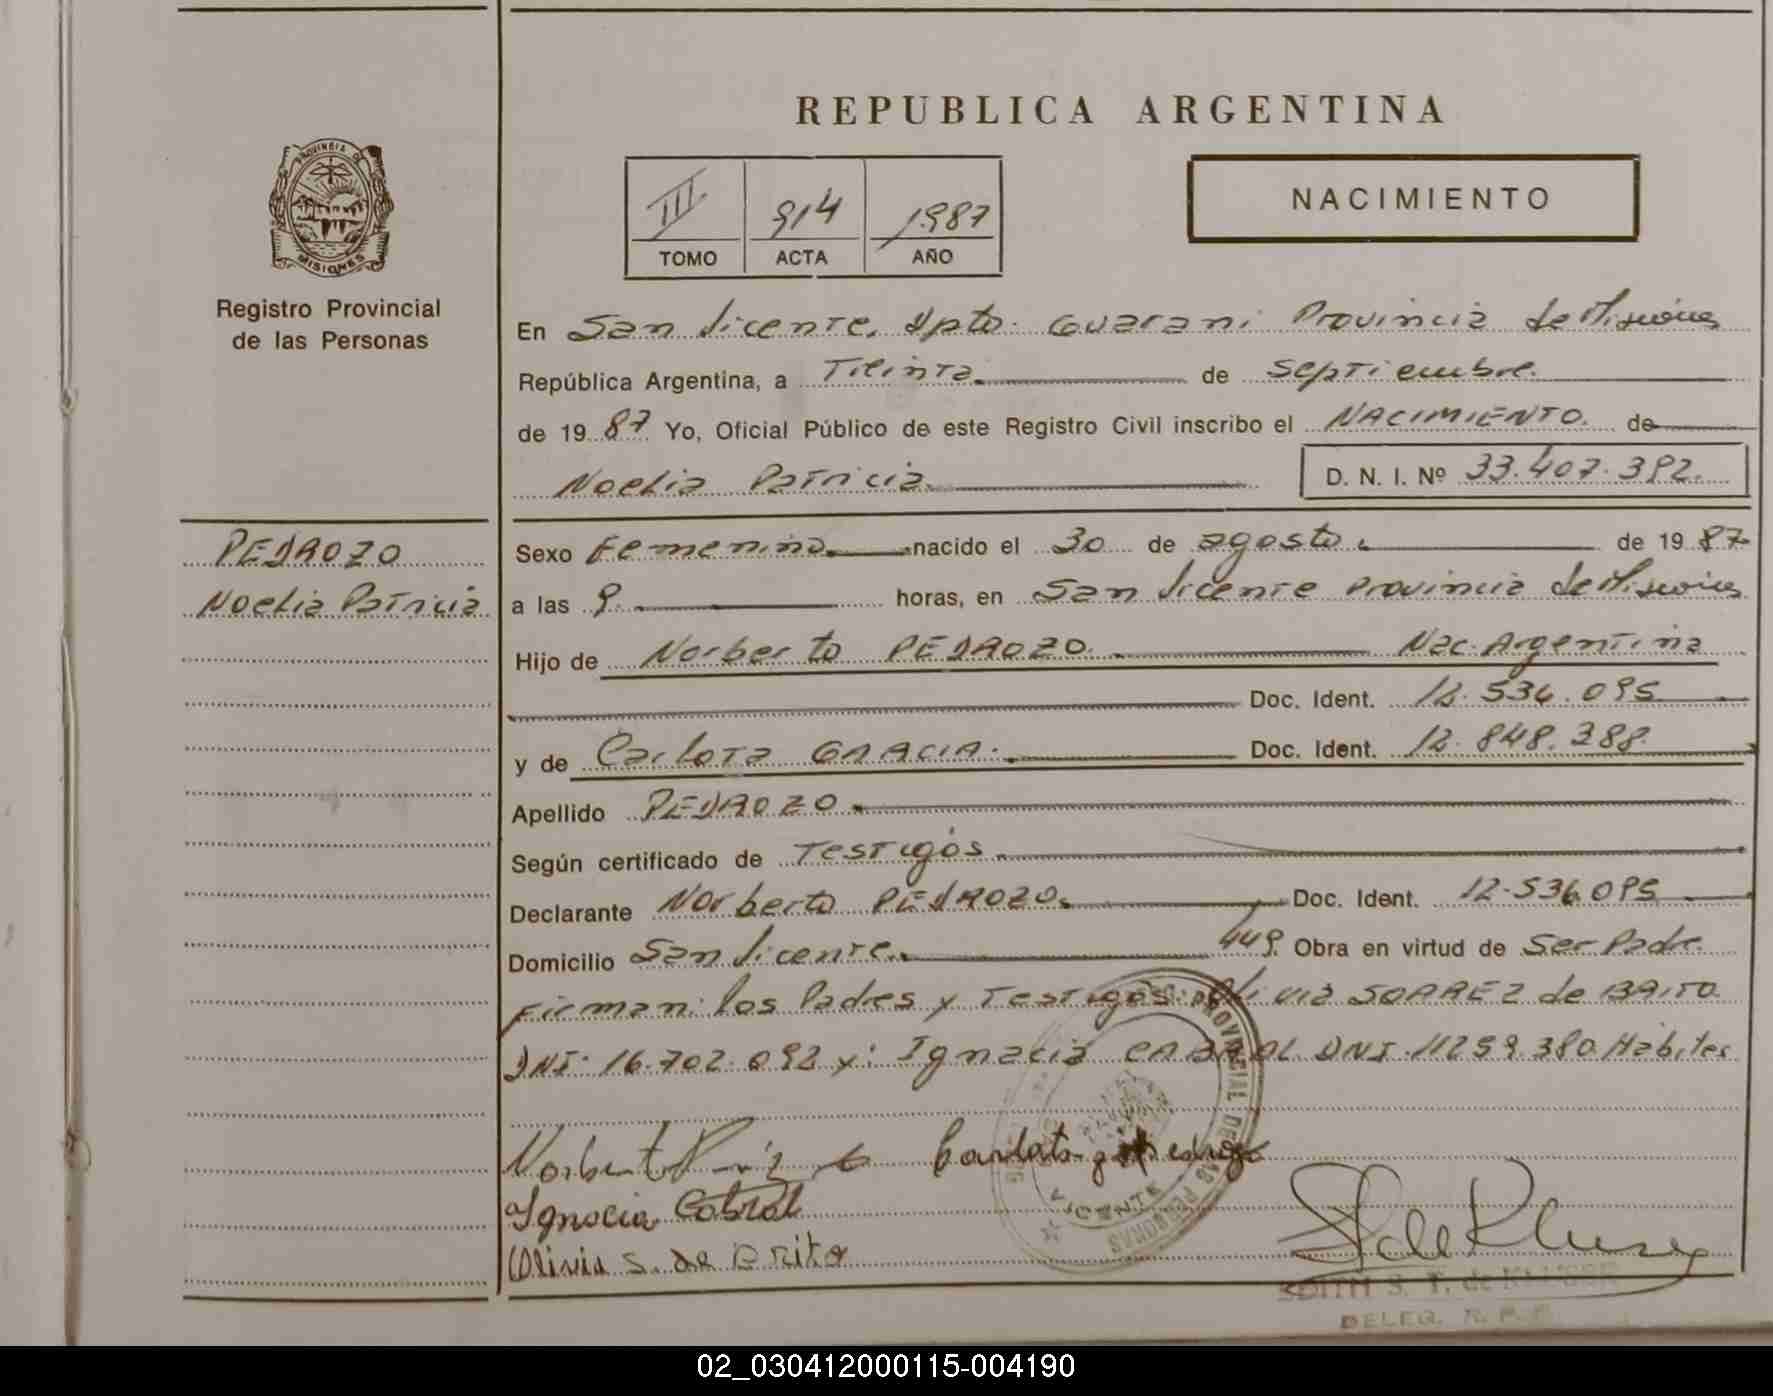 REPUBLICA ARGENTINA
PROVINCIA DE
MISIONES
Registro Provincial
de las Personas
III 914 1987
TOMO ACTA AÑO
NACIMIENTO
En San Vicente, Dpto. Guarani Provincia de Misiones
República Argentina, a Treinta de Septiembre
de 19 87 Yo, Oficial Público de este Registro Civil inscribo el NACIMIENTO de
Noelia Patricia D. N. I. Nº 33.407.392.
PEDROZO
Noelia Patricia
Sexo Femenino nacido el 30 de agosto de 19 87
a las 9. horas, en San Vicente Provincia de Misiones
Hijo de Norberto PEDROZO. Nac. Argentina
Doc. Ident. 12.536.095
y de Carlota GARCIA. Doc. Ident. 12.848.388.
Apellido PEDROZO
Según certificado de Testigos
Declarante Norberto PEDROZO. Doc. Ident. 12.536.095
Domicilio San Vicente. 449. Obra en virtud de Ser Padre.
Firman: los Padres y Testigos: Olivia SOAREZ de BRITO
DNI. 16.702.092 y: Ignacia CABRAL DNI. 11259.380 Hábiles
PROVINCIAL DE LAS PERSONAS
VICENTE
Ignacia Cabral
Olivia S. de Brito
EDITH S. T. de KLUSER
DELEG. R. P. P.
02_030412000115-004190